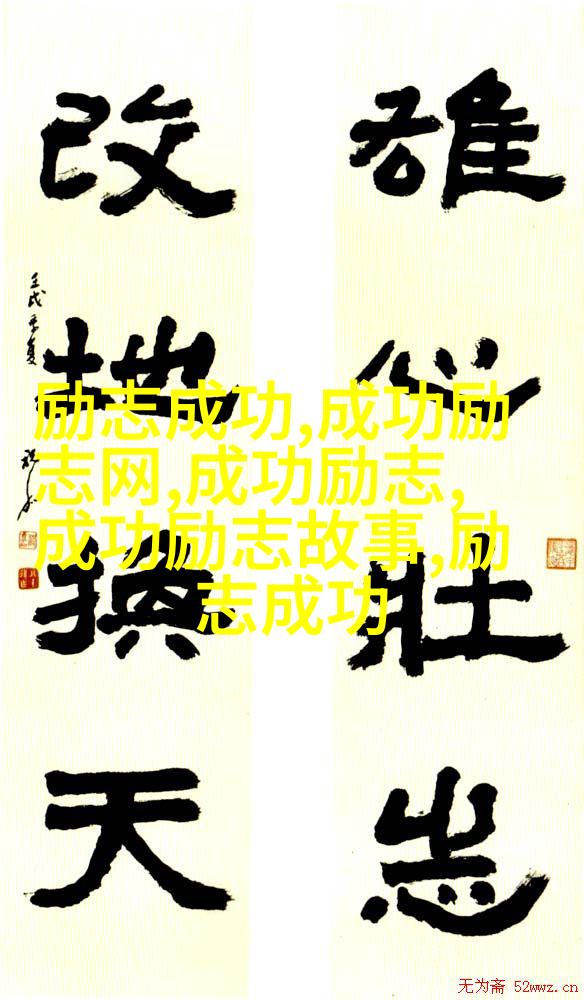 雄心壮志
改地换天
壬戌
励志成功,成功励
志网,成功励志,
成功励志故事,励
志成功
无为斋 52wwz.cn